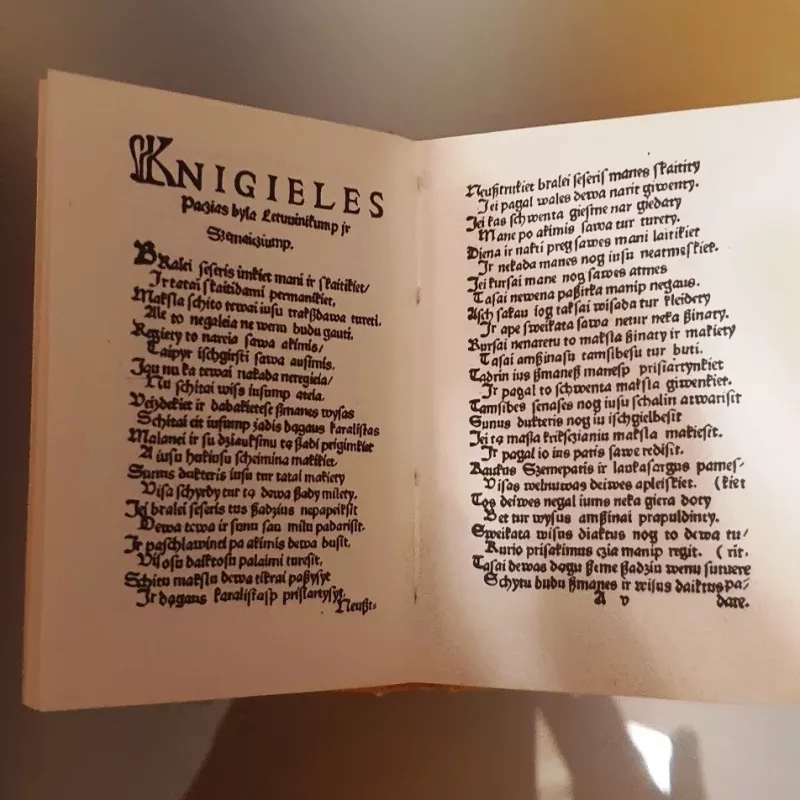 KNIGIELES
Paczias byla Letuvinikump ir
Szemaicziump.
BRalei seseris imkiet mani ir skaitikiet/
Ir tatai skaitidami permanikiet.
Maksla schito tewai iusu trakßdawa tureti.
Ale to negaleia ne wenu budu gauti.
Regiety to nareia sawa akimis/
Taipyr ischgirsti sawa ausimis.
Iau nu ka tewai nakada neregieia/
Nu schitai wiss iusump ateia.
Veizdekiet ir dabakietese ßmanes wysas
Schitai eit iusump ßadis dągaus karalistas
Malanei ir su dziauksmu tą ßadi prigimkiet
A iusu hukiusu scheimina makikiet/
Sunus dukteris iusu tur tatai makiety
Visa schyrdy tur tą dewa ßady milety.
Jei bralei seseris tus ßadzius nepapeiksit
Dewa tewa ir sunu sau milu padarisit.
Ir paschlawinti pa akimis dewa busit,
Visosu daiktosu palaimi turesit.
Schitu makslu dewa tikrai paßysyt
Ir dągaus karalistasp pristartysyt.
Neußt-
Neußtrukiet bralei seseris manes skaitity
Jei pagal wales dewa narit giwenty.
Jei kas schwenta giesme nar giedaty
Mane po akimis sawa tur turety.
Diena ir nakti preg sawes mani laikikiet
Ir nekada manes nog iusu neatmeskiet.
Jei kursai mane nog sawes atmes
Tasai newena paßirka manip negaus.
Asch sakau iog taksai wisada tur kleidety
Ir ape sweikata sawa netur neka ßinaty.
Kursai nenareru to maksla ßinaty ir makiety
Tasai amßinasu tamsibesu tur buti.
Tądrin ius ßmanes manesp pristartynkiet
Ir pagal to schwenta maksla giwenkiet.
Tamsibes senases nog iusu schalin atwarisit
Sunus dukteris nog iu ischgielbesit
Jei tą masla kriksczianiu maksla makiesit.
Ir pagal io ius patis sawe redisit.
Kaukus Szemepatis ir laukasargus pames-
Visas welnuwas deiwes apleiskiet. (kiet
Tos deiwes negal iums neka giera doty
Bet tur wysus amßinai prapuldinty.
Sweikata wisus diaktus nog to dewa tu/
Kurio prisakimus czia manip regit. (rit.
Tasai dewas dągu ßeme ßadziu wenu sutwere
Schytu budu ßmanes ir wisus daiktus pa
A v dare.